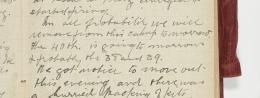 started firing
In all probability we will
remove from this camp tomorrow
the 40th. is going tomorrow
& probably the 38 and 39.
We got notice to move out
this evening and there was
a hurried packing of kits